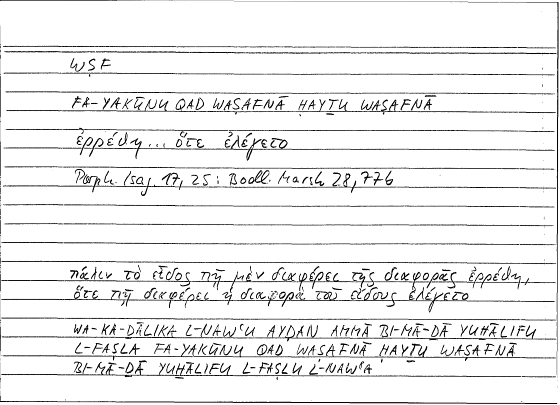 WṢF
FA-YAKŪNU QAD WAṢAFNĀ ḤAYṮU WAṢAFNĀ
ἐρρέθη... ὅτε ἐλέγετο
Porph. Isag. 17, 25: Bodl. Marsh 28, 77b
πάλιν τὸ εἶδος πῇ μὲν διαφέρει τῆς διαφορᾶς ἐρρέθη,
ὅτε πῇ διαφέρει ἡ διαφορὰ τοῦ εἴδους ἐλέγετο
WA-KA-ḎĀLIKA L-NAWʿU AYḌAN AMMĀ BI-MĀ-ḎĀ YUḪĀLIFU
L-FAṢLA FA-YAKŪNU QAD WAṢAFNĀ ḤAYṮU WAṢAFNĀ
BI-MĀ-ḎĀ YUḪĀLIFU L-FAṢLU L-NAWʿA